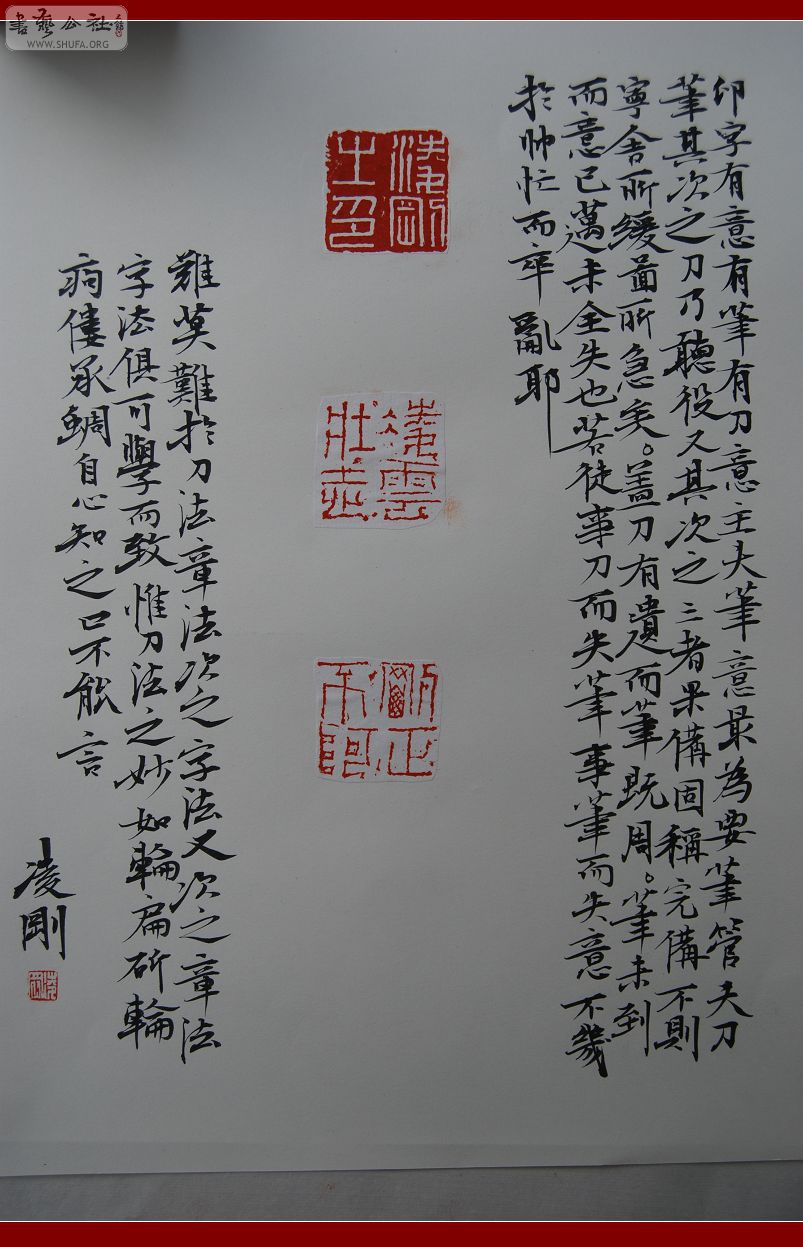 書藝公社
WWW.SHUFA.ORG
印字有意有筆有刀意主夫筆意最為要筆管夫刀
筆其次之刀乃聽役又其次之三者果備固稱完備不則
寧舍所緩圖所急矣。蓋刀有遺而筆既周。筆未到
而意已邁未全失也若徒事刀而失筆事筆而失意不幾
於帅忙而卒亂耶
凌剛之印
凌雲壯志
剛正不阿
難莫難於刀法章法次之字法又次之章法
字法俱可學而致惟刀法之妙如輪扁斫輪
痀僂承蜩自心知之口不能言
凌剛